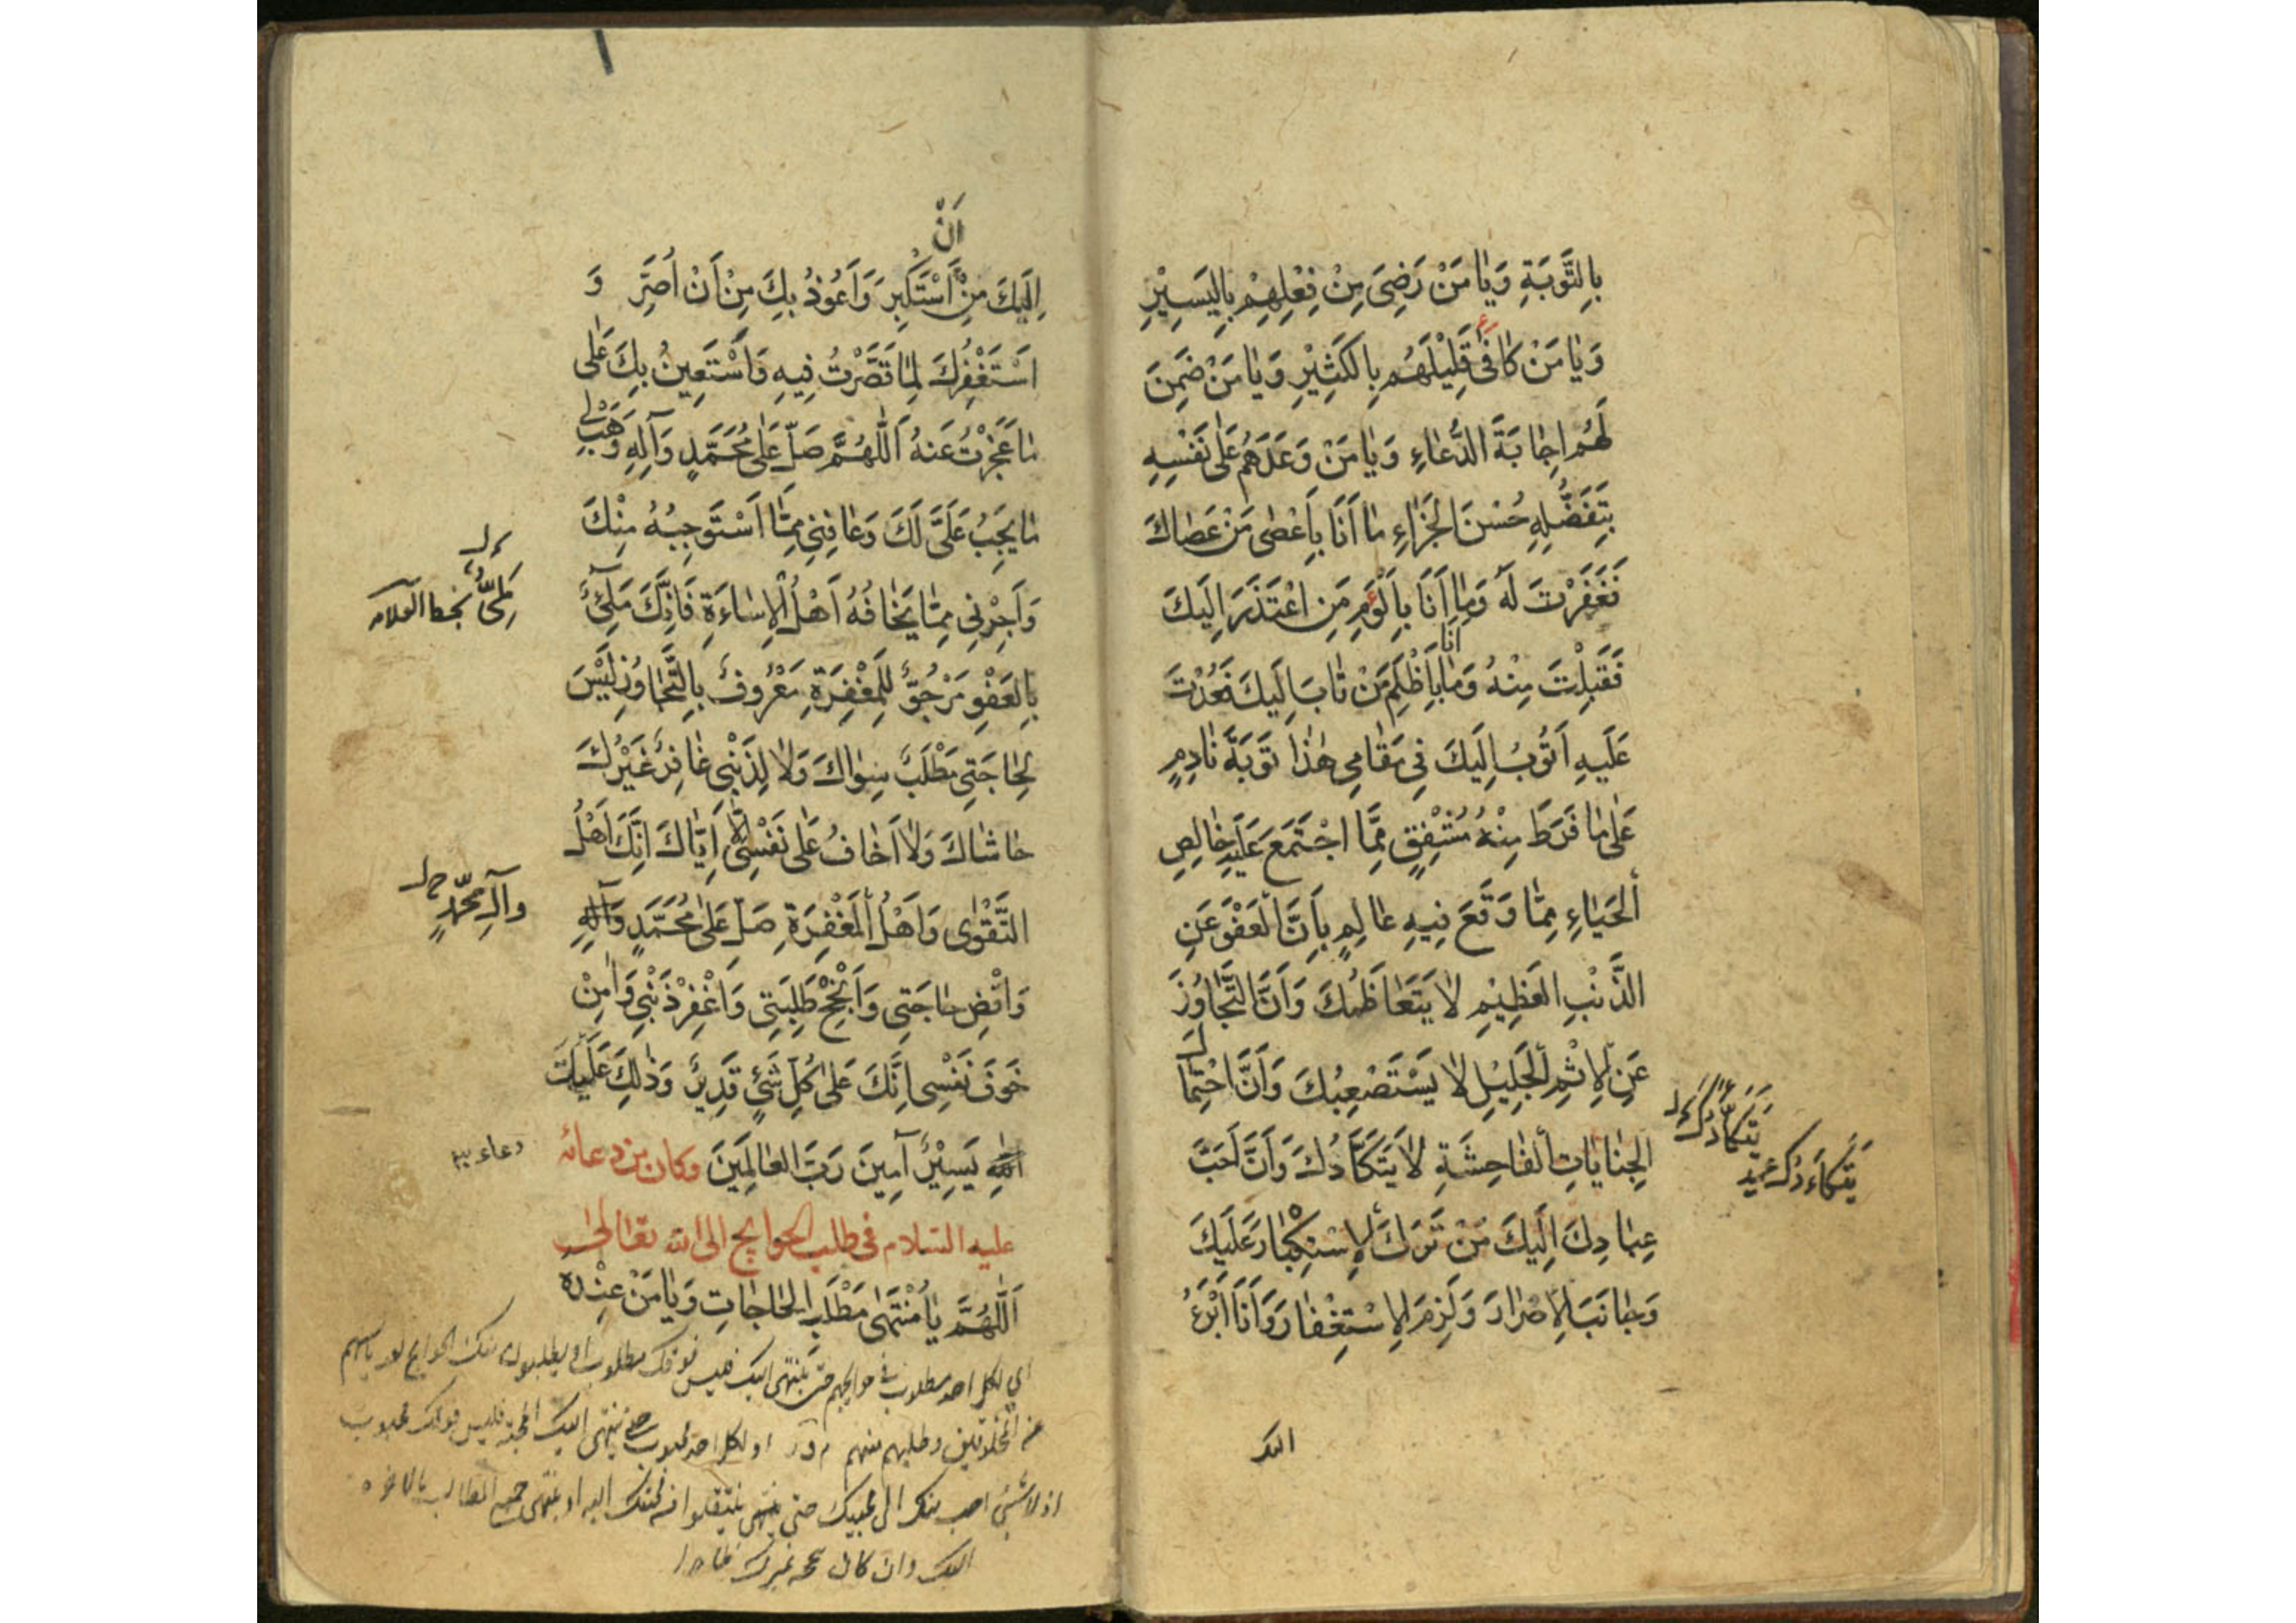 بِالتَّوْبَةِ وَيٰا مَنْ رَضِىَ مِنْ فِعْلِهِمْ بِالْيَسِيْرِ
وَيٰا مَنْ كٰافٰى قَلِيْلَهُمْ بِالْكَثِيْرِ وَيٰا مَنْ ضَمِنَ
لَهُمْ اِجٰابَةَ الدُّعٰاءِ وَيٰا مَنْ وَعَدَهُمْ عَلٰى نَفْسِهِ
بِتَفَضُّلِهِ حُسْنَ الْجَزٰاءِ مٰا اَنَا بِاَعْصٰى مَنْ عَصٰاكَ
فَغَفَرْتَ لَهُ وَمٰا اَنَا بِاَلْوَمِ مَنِ اعْتَذَرَ اِلَيْكَ
فَقَبِلْتَ مِنْهُ وَمٰا اَنَا بِاَظْلَمِ مَنْ تٰابَ اِلَيْكَ فَعُدْتَ
عَلَيْهِ اَتُوبُ اِلَيْكَ فِي مَقٰامِي هٰذٰا تَوْبَةَ نٰادِمٍ
عَلٰى مٰا فَرَطَ مِنْهُ مُشْفِقٍ مِمَّا اجْتَمَعَ عَلَيْهِ خٰالِصِ
الْحَيٰاءِ مِمّٰا وَقَعَ فِيهِ عٰالِمٍ بِاَنَّ الْعَفْوَ عَنِ
الذَّنْبِ الْعَظِيْمِ لاٰ يَتَعٰاظَمُكَ وَاَنَّ التَّجٰاوُزَ
عَنِ الْاِثْمِ الْجَلِيْلِ لاٰ يَسْتَصْعِبُكَ وَاَنَّ احْتِمٰالَ
الْجِنٰايٰاتِ الْفٰاحِشَةِ لاٰ يَتَكَأَّدُكَ وَاَنَّ اَحَبَّ
عِبٰادِكَ اِلَيْكَ مَنْ تَرَكَ الْاِسْتِكْبٰارَ عَلَيْكَ
وَجٰانَبَ الْاِصْرٰارَ وَلَزِمَ الْاِسْتِغْفٰارَ وَاَنَا اَبْرَءُ
اليك
يَتَكَأَّدُكَ
يَتَكَاءَدُكَ
اِلَيْكَ مِنْ اَنْ اَسْتَكْبِرَ وَاَعُوذُ بِكَ مِنْ اَنْ اُصِرَّ وَ
اَسْتَغْفِرُكَ لِمٰا قَصَّرْتُ فِيهِ وَاَسْتَعِينُ بِكَ عَلٰى
مٰا عَجَزْتُ عَنْهُ اَللّٰهُمَّ صَلِّ عَلٰى مُحَمَّدٍ وَآلِهِ وَهَبْ لِي
مٰا يَجِبُ عَلَيَّ لَكَ وَعٰافِنِي مِمّٰا اَسْتَوْجِبُهُ مِنْكَ
وَاَجِرْنِي مِمّٰا يَخٰافُهُ اَهْلُ الْاِسٰاءَةِ فَاِنَّكَ مَلِيٌّ
بِالْعَفْوِ مَرْجُوٌّ لِلْمَغْفِرَةِ مَعْرُوفٌ بِالتَّجٰاوُزِ لَيْسَ
لِحٰاجَتِي مَطْلَبٌ سِوٰاكَ وَلاٰ لِذَنْبِي غٰافِرٌ غَيْرُكَ
حٰاشٰاكَ وَلاٰ اَخٰافُ عَلٰى نَفْسِي اِلّٰا اِيّٰاكَ اِنَّكَ اَهْلُ
التَّقْوٰى وَاَهْلُ الْمَغْفِرَةِ صَلِّ عَلٰى مُحَمَّدٍ وَآلِهِ
وَاقْضِ حٰاجَتِي وَاَنْجِحْ طَلِبَتِي وَاغْفِرْ ذَنْبِي وَاٰمِنْ
خَوْفَ نَفْسِي اِنَّكَ عَلٰى كُلِّ شَيْءٍ قَدِيرٌ وَذٰلِكَ عَلَيْكَ
يَسِيْرٌ آمِينَ رَبَّ الْعٰالَمِينَ وكان من دعائه
عليه السلام فى طلب الحوايج الى الله تعالى
اَللّٰهُمَّ يٰا مُنْتَهٰى مَطْلَبِ الْحٰاجٰاتِ وَيٰا مَنْ عِنْدَهُ
بخط العلامه
وآلِ محمّدٍ
دعاء
اي لكل احد مطلوب في حوايجهم حتى ينتهى اليك فليس فوقك مطلوب
عن المخلوقين وطلبهم منهم او لكل احد محبوب حتى ينتهى اليك المحبة فليس فوقك محبوب
اليك وان كان غيرك ظاهرا